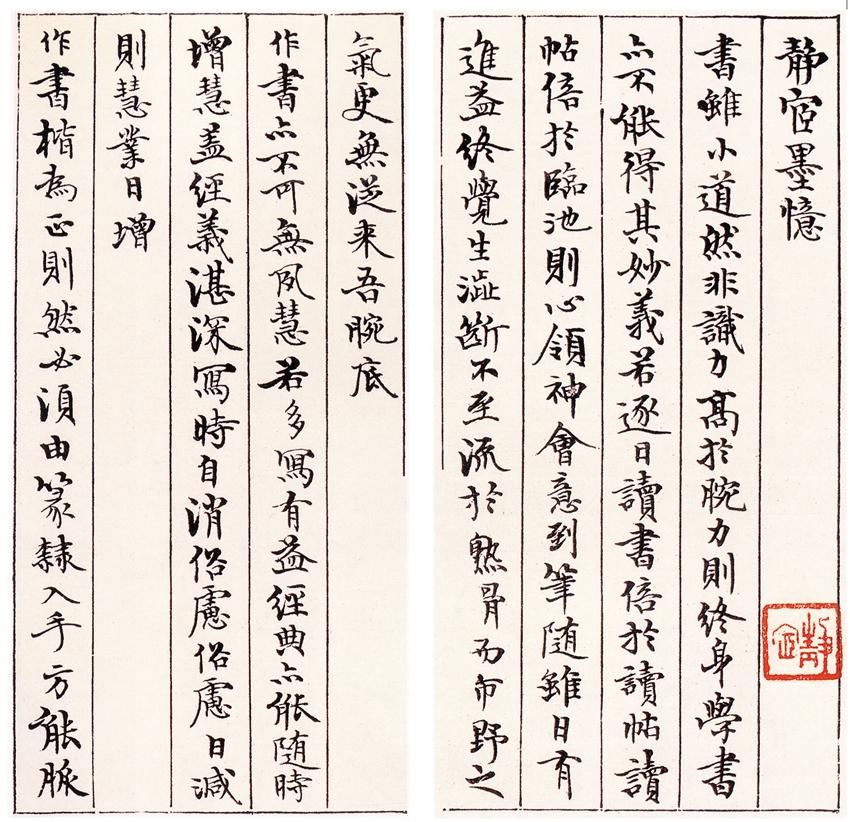 静宧墨憶
書雖小道然非識力髙於腕力則終身學書
亦不能得其妙義若逐日讀書倍於讀帖讀
帖倍於臨池則心領神會意到筆随雖日有
進益終覺生澁斷不至流於熟骨而市野之
氣更無從来吾腕底
作書亦不可無夙慧若多寫有益經典亦能隨時
增慧蓋經義湛深寫時自消俗慮俗慮日減
則慧業日增
作書楷為正則然必須由篆隸入手方能脈